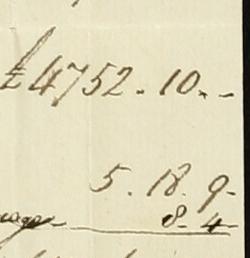 £4752. 10. -
5. 18. 9-
8. 4-